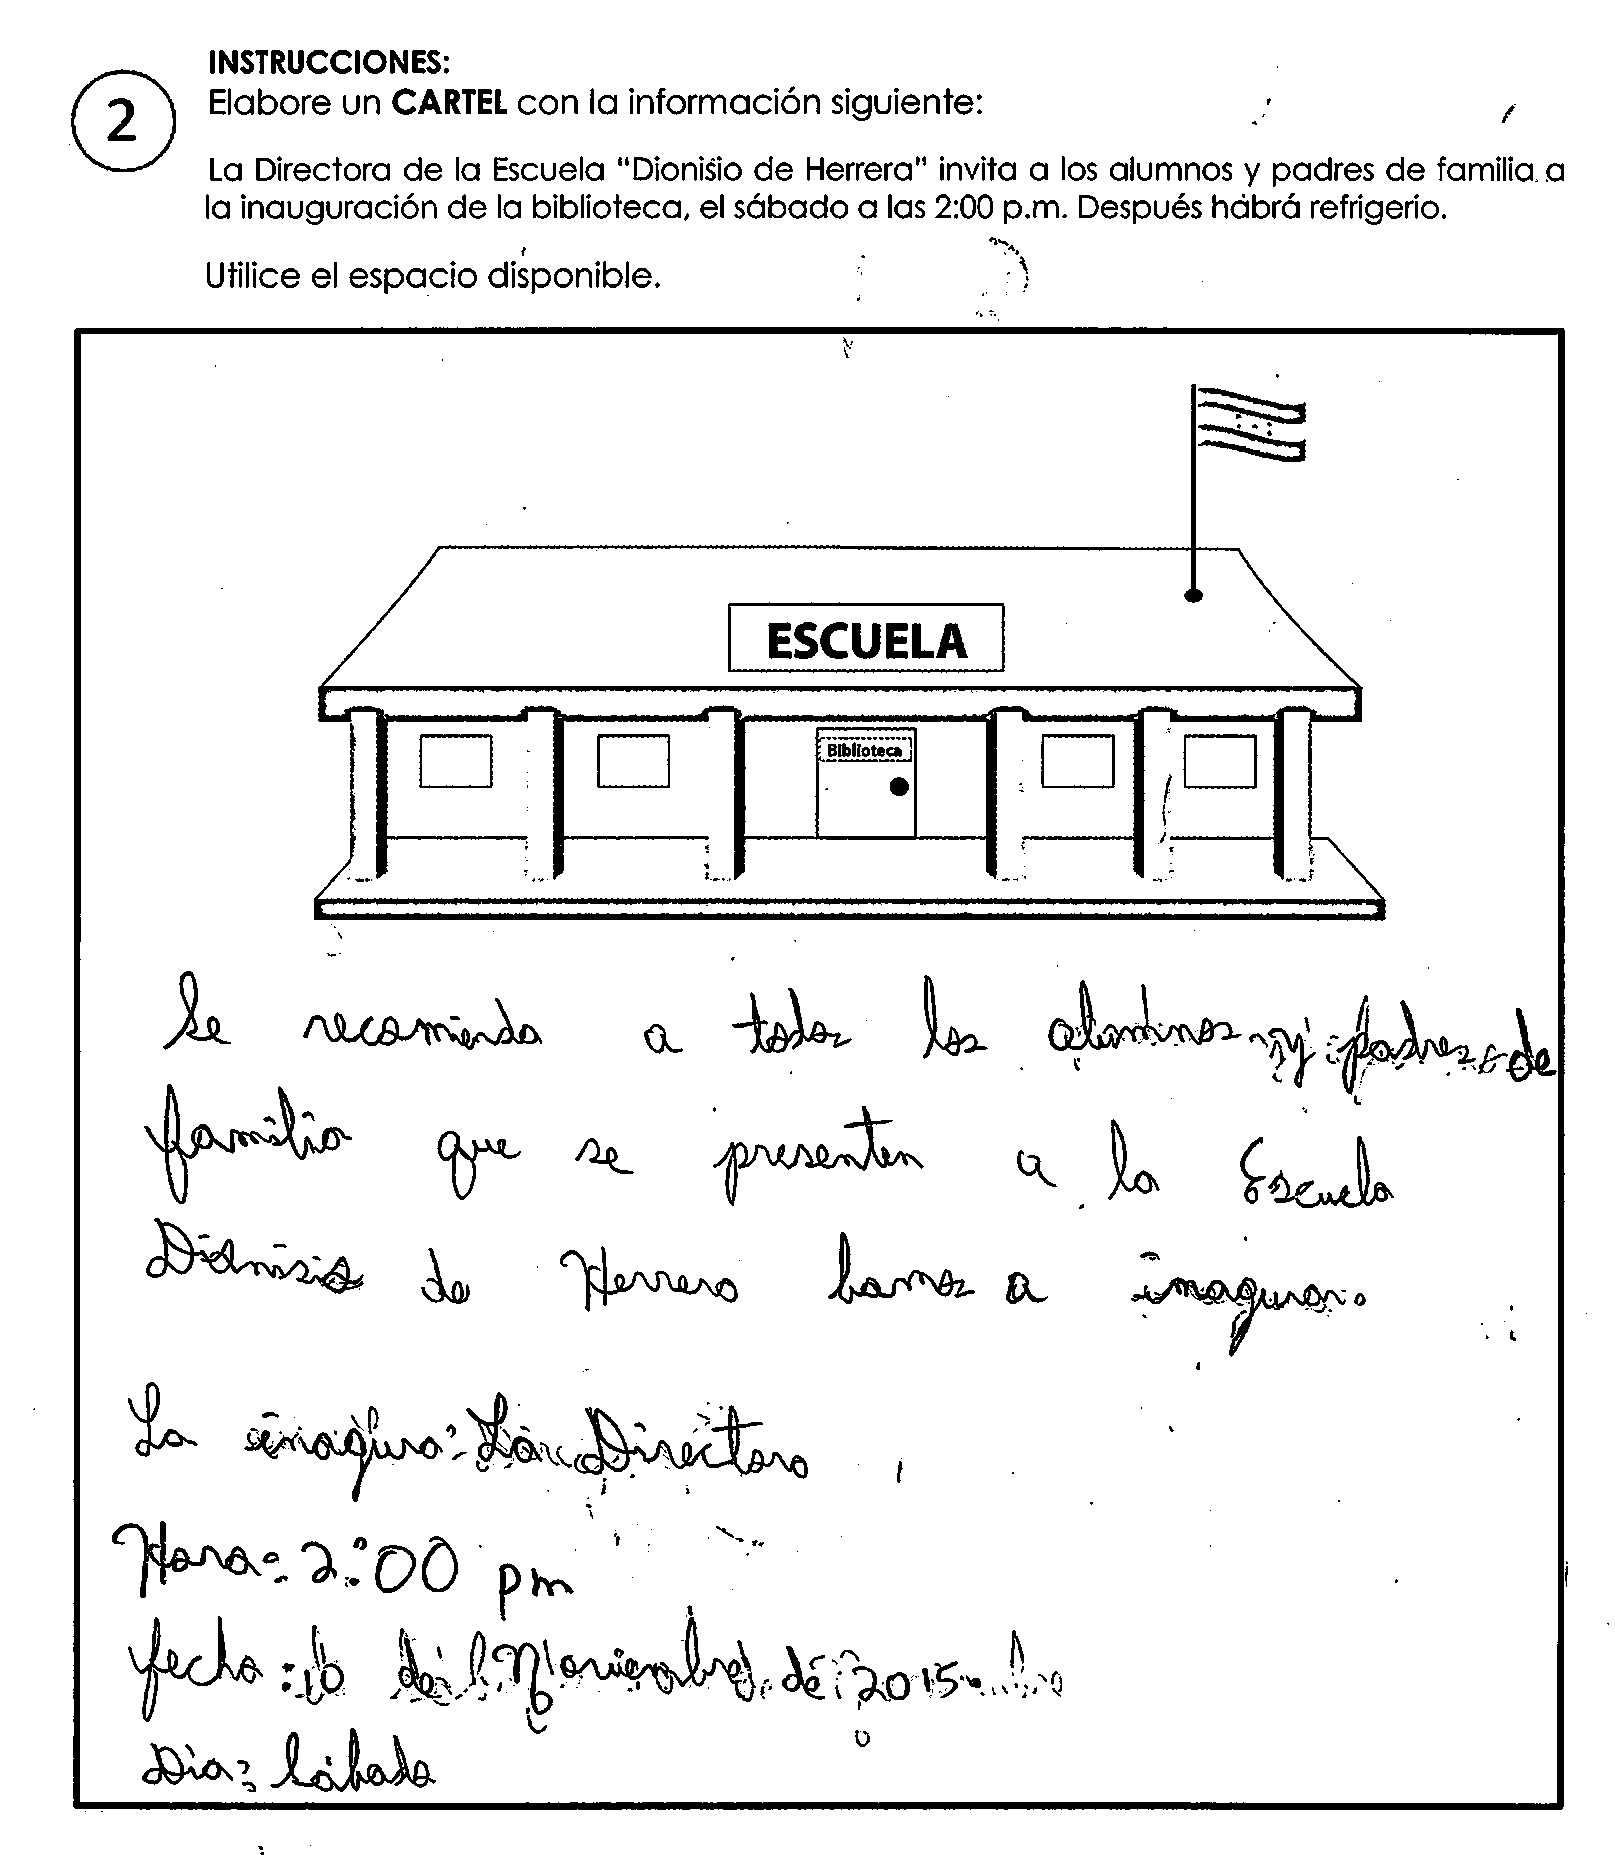 INSTRUCCIONES:
2
Elabore un CARTEL con la información siguiente:
La Directora de la Escuela "Dionisio de Herrera" invita a los alumnos y padres de familia a
la inauguración de la biblioteca, el sábado a las 2:00 p.m. Después habrá refrigerio.
Utilice el espacio disponible.
ESCUELA
Biblioteca
Se recomienda a todos los alumnos y padres de
familia que se presenten a la Escuela
Dionisio de Herrera bamos a inagurar.
La inagura: La Directora
Hora: 2:00 pm
fecha: 10 de Noviembre de 2015
Dia: Sábado